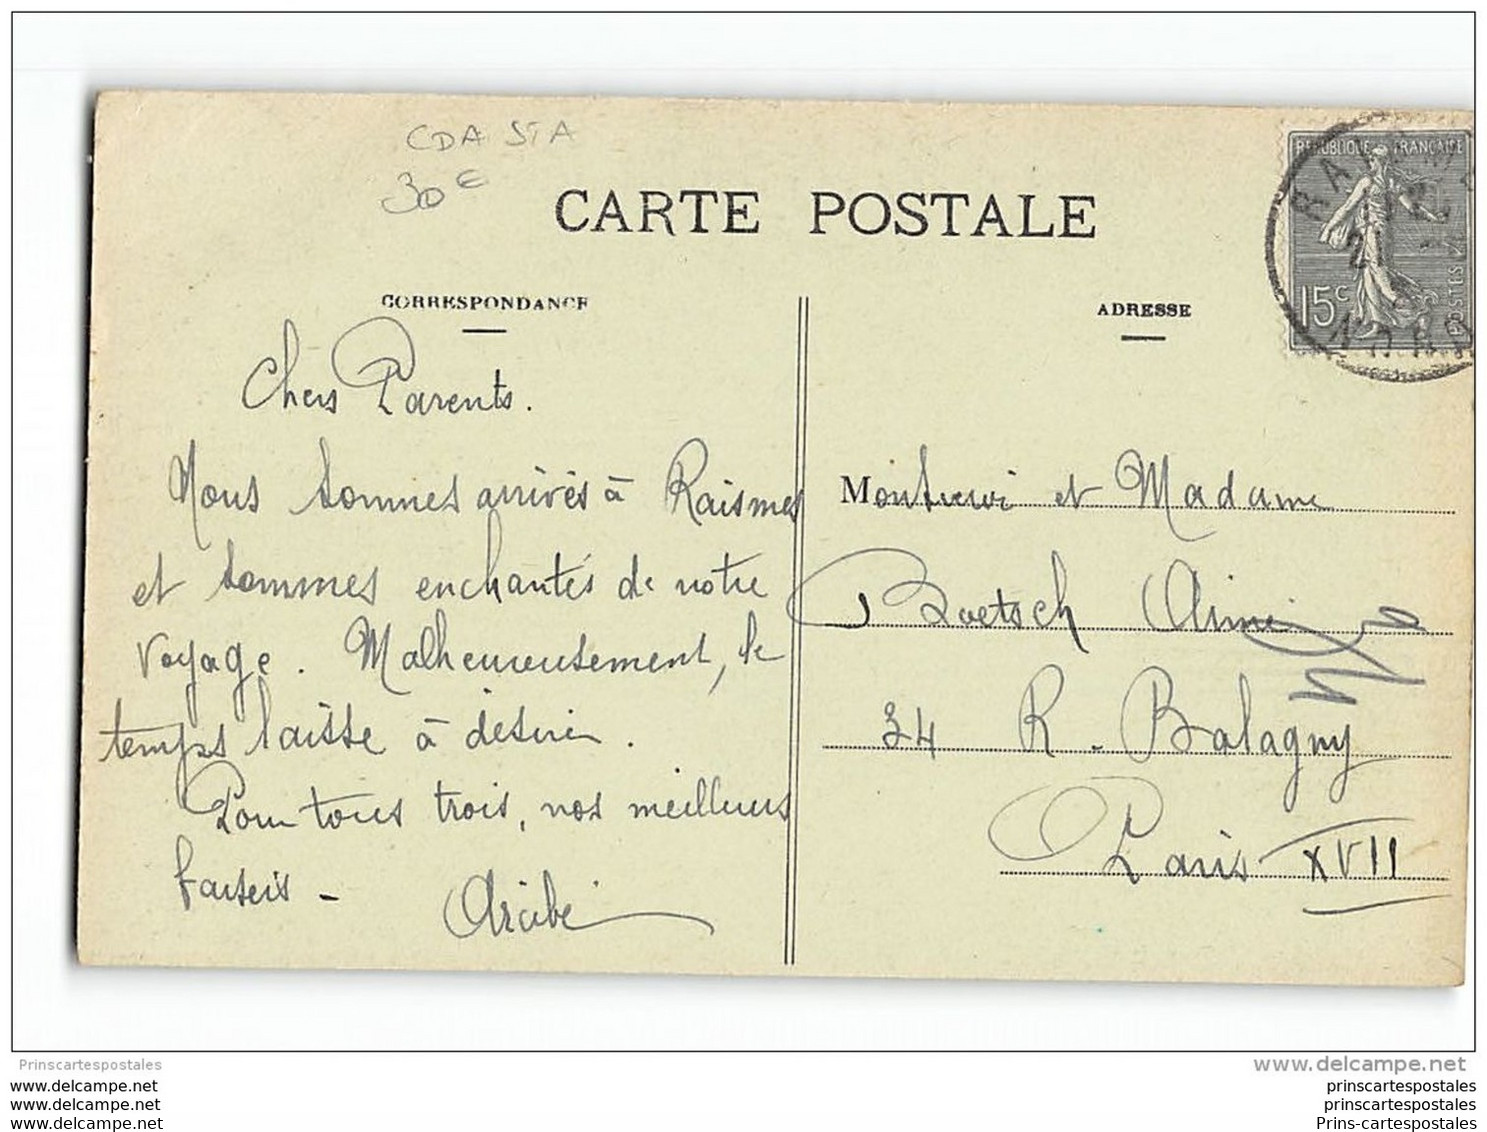 CDA STA
30€
CARTE POSTALE
CORRESPONDANCE
ADRESSE
REPUBLIQUE FRANÇAISE
15c
POSTES
NORD
Chers Parents.
Nous sommes arrivés à Raismes
et sommes enchantés de notre
voyage. Malheureusement, le
temps laisse à désirer.
Pour tous trois, nos meilleurs
baisers -
Monsieur et Madame
Boetsch Aimé
34 R. Balagny
Paris XVII
Prinscartespostales
www.delcampe.net
www.delcampe.net
www.delcampe.net
www.delcampe.net
prinscartespostales
prinscartespostales
Prins-cartespostales